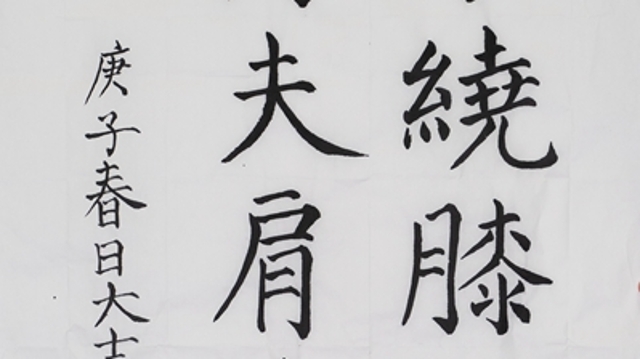 繞膝
夫肩
庚子春日大吉